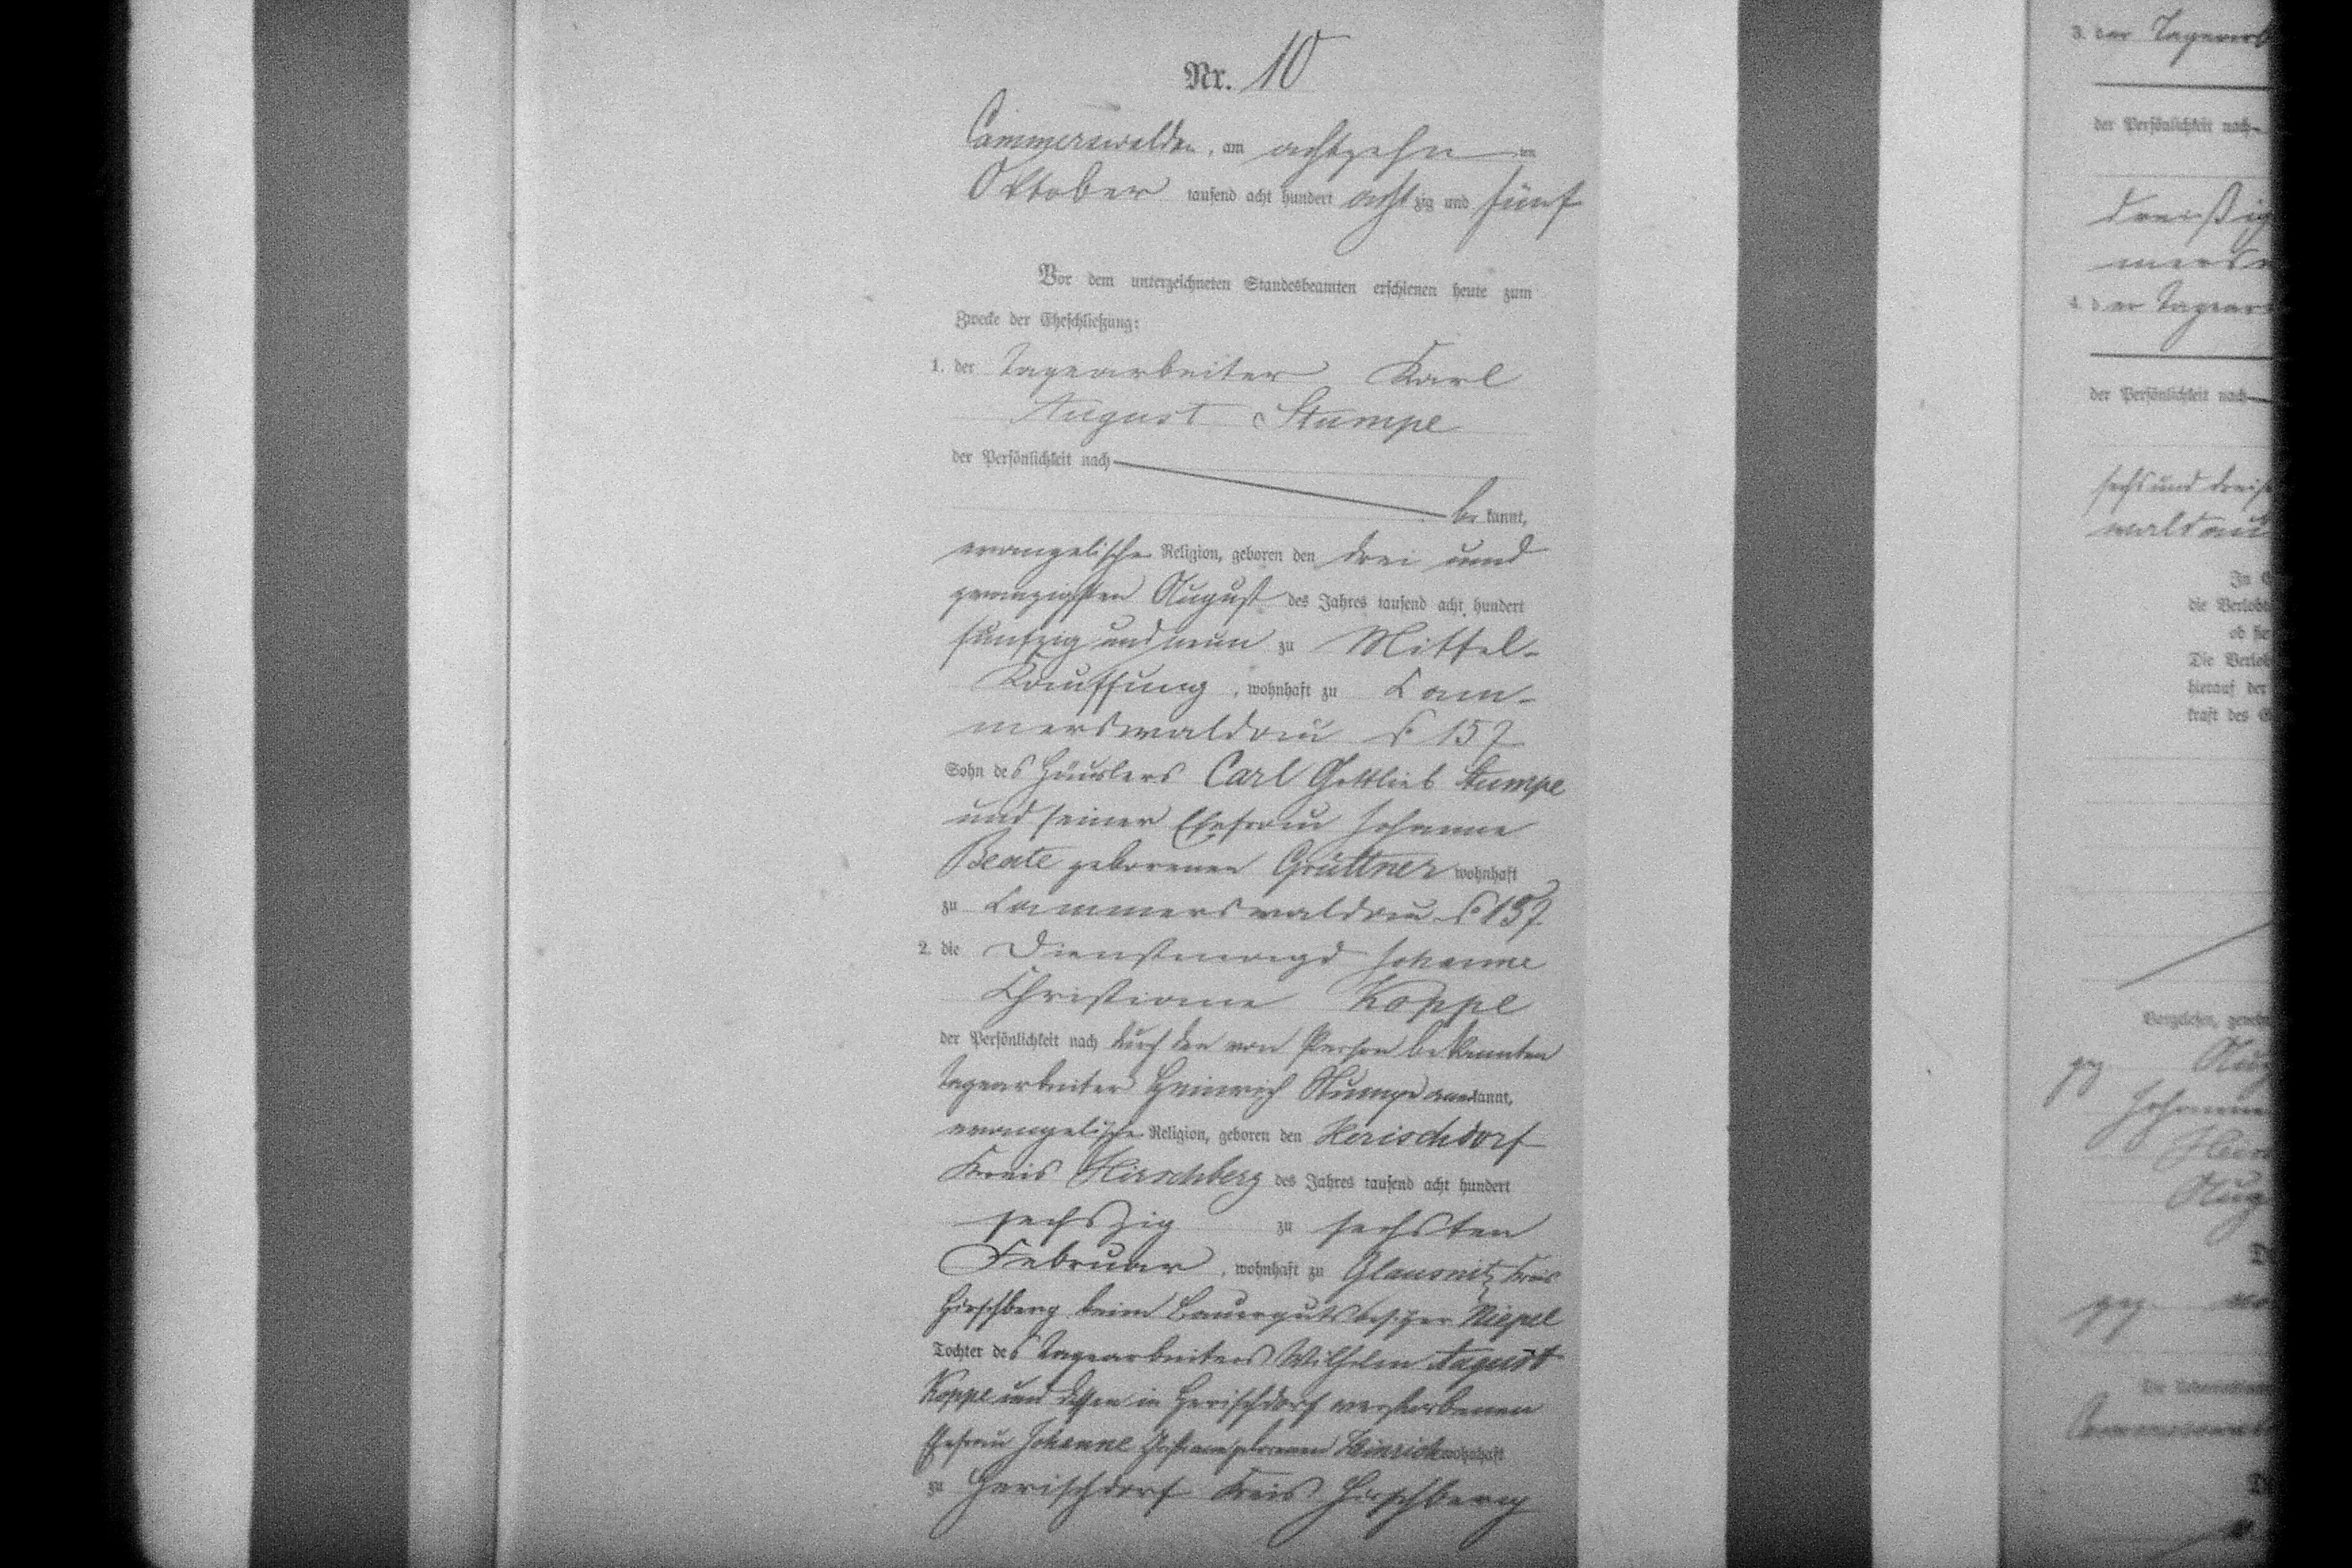 Nr. 10
Cammerswaldau, am achtzehn ten
Oktober tausend acht hundert acht zig und fünf
Vor dem unterzeichneten Standesbeamten erschienen heute zum
Zwecke der Eheschließung:
1. der Tagearbeiter Karl
August Stumpe
der Persönlichkeit nach
be kannt,
evangelischer Religion, geboren den drei und
zwanzigsten August des Jahres tausend acht hundert
funfzig und neun zu Mittel-
Kauffung, wohnhaft zu Cam-
merswaldau № 157
Sohn des Häuslers Carl Gottlieb Stumpe
und seiner Ehefrau Johanne
Beate geborenen Grüttner wohnhaft
zu Cammerswaldau № 157
2. die Dienstmagd Johanne
Christiane Koppe
der Persönlichkeit nach durch den von Person bekannten
Tagearbeiter Heinrich Stumpe anerkannt,
evangelischer Religion, geboren den Herischdorf
Kreis Hirschberg des Jahres tausend acht hundert
sechszig zu sechsten
Februar, wohnhaft zu Glausnitz Kreis
Hirschberg beim Bauergutsbesitzer Niepel
Tochter des Tagearbeiters Wilhelm August
Koppe und dessen in Herischdorf verstorbenen
Ehefrau Johanne Christiane geborenen Heinrich wohnhaft
zu Herischdorf Kreis Hirschberg
3. der
der Persönlichkeit nach
4. der
der Persönlichkeit nach
sechs und
In
die
ob
Die
hierauf der
kraft des
gez
Johanne
gez
Die